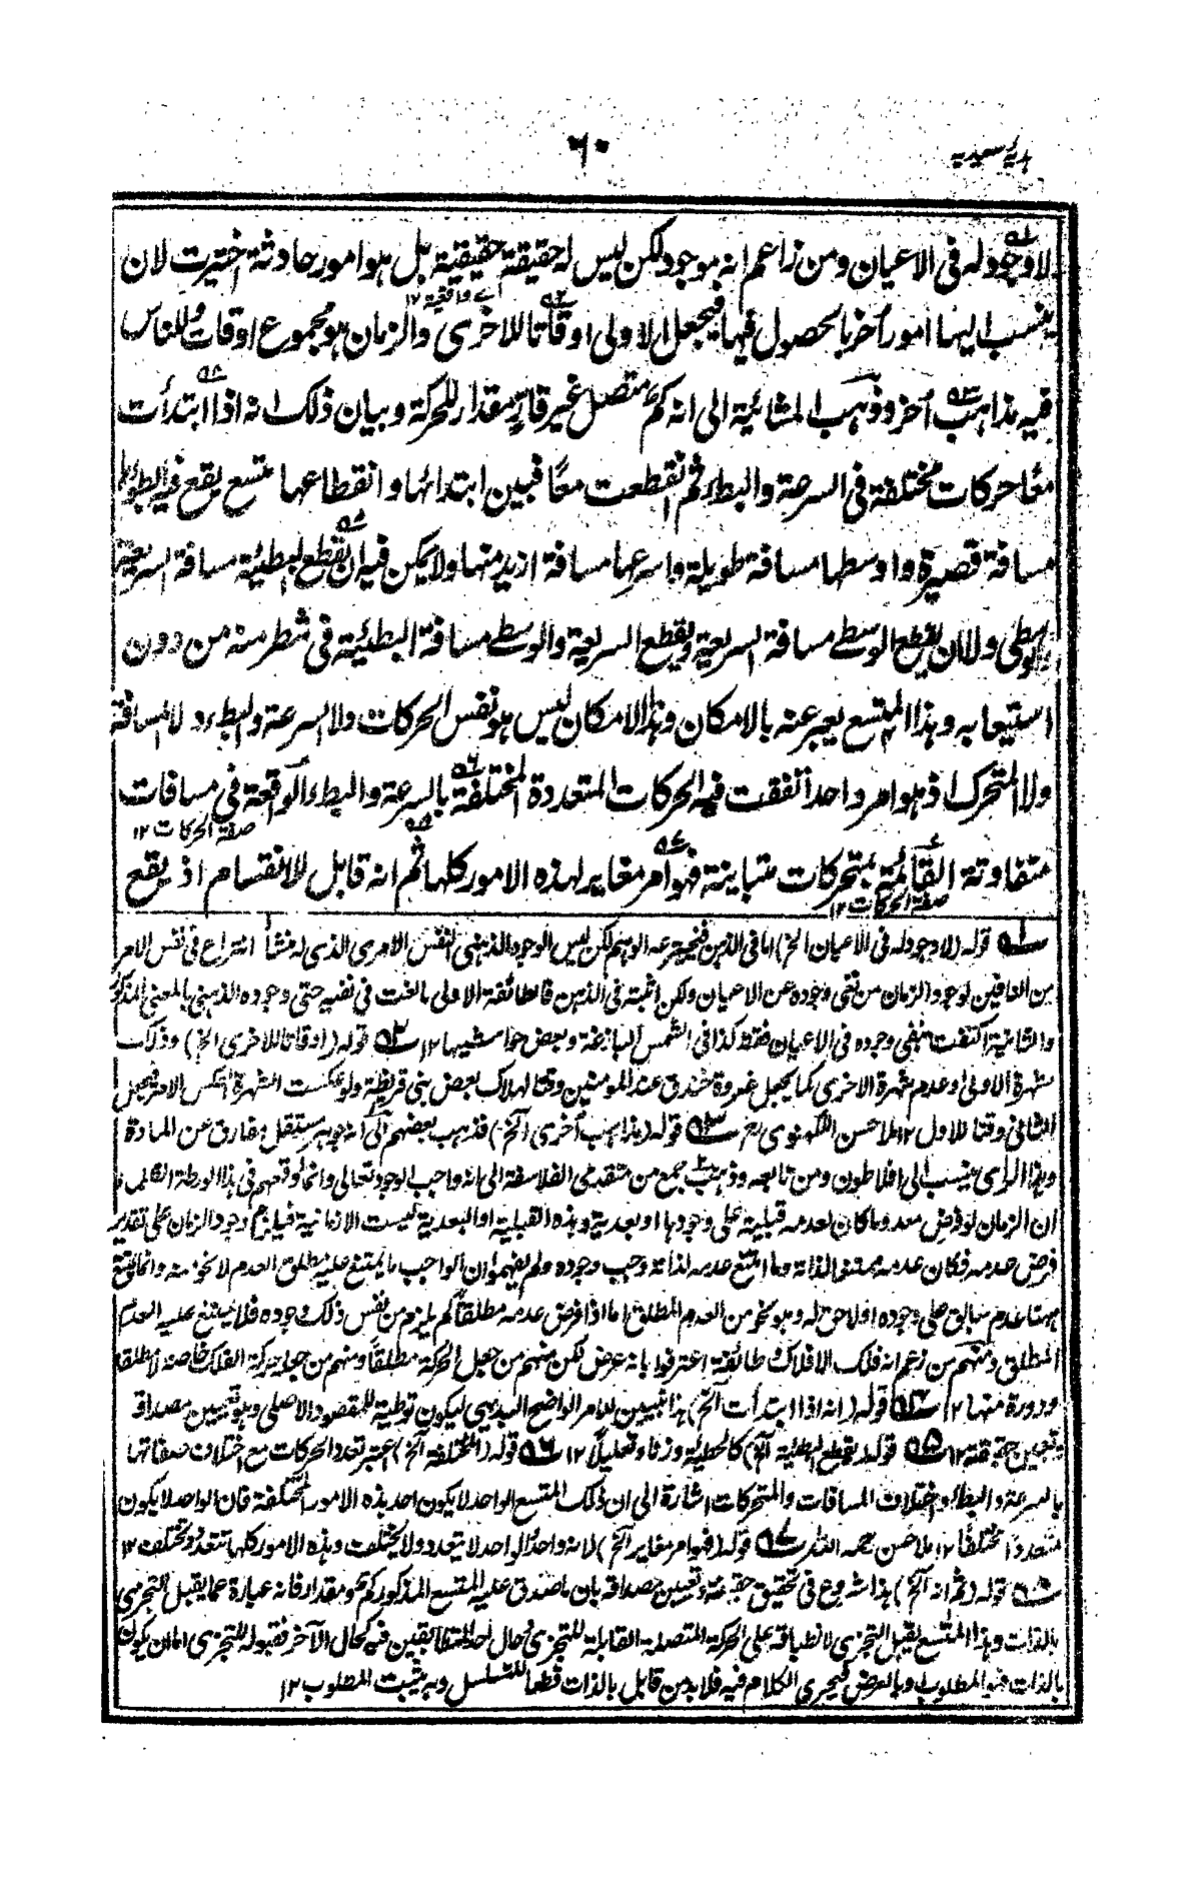 هدية سعيدية
٦٠
لا وجود له فى الاعيان ومن زاعم انه موجود لكن ليس له حقيقة حقيقية بل هو امور حادثة اختيرت لان
ينسب اليها امور اخر بالحصول فيها فيجعل الاولى اوقاتا للاخرى والزمان هو مجموع اوقات وللناس
اے واقعية ١٢
فيه مذاهب اخر وذهب المشائية الى انه كم متصل غير قار مقدار للحركة وبيان ذلك انه اذا ابتدأت
معا حركات مختلفة فى السرعة والبطء ثم انقطعت معا فبين ابتدائها وانقطاعها متسع يقع فيه البطوئها
مسافة قصيرة واوسطها مسافة طويلة واسرعها مسافة ازيد منها ولا يمكن فيه ان يقطع البطيئة مسافة السريعة
والوسطى ولا ان يقطع الوسطى مسافة السريعة ويقطع السريعة والوسطى مسافة البطيئة فى شطر منه من دون
استيعابه وهذا المتسع يعبر عنه بالامكان وهذا الامكان ليس هو نفس الحركات ولا السرعة والبطء ولا المسافة
ولا المتحرك اذ هو امر واحد اتفقت فيه الحركات المتعددة المختلفة بالسرعة والبطء الواقعة فى مسافات
صفة الحركات ١٢
متفاوتة القائمة بمتحركات متباينة فهو امر مغاير لهذه الامور كلها ثم انه قابل للانقسام اذ يقع
صفة الحركات ١٢
قوله (لا وجود له فى الاعيان الخ) اما فى الذهن فيخترعه الوهم لكن ليس الوجود الذهنى النفس الامرى الذى له منشأ انتزاع فى نفس الامر
من النافين لوجود الزمان من نفى وجوده عن الاعيان ولكن اثبته فى الذهن فالطائفة الاولى بالغت فى نفيه حتى وجوده الذهنى بالمعنى المذكور
والثانية اكتفت بنفى وجوده فى الاعيان فقط كذا فى الشمس البازغة وبعض حواشيها ١٢ قوله (اوقاتا للاخرى الخ) وذلك
شهرة الاولى وعدم شهرة الاخرى كما يجعل غزوة خندق عند المؤمنين وقتا لهلاك بعض بنى قريظة ولو عكست الشهرة انعكس الامر فيجعل
الثانى وقتا للاول ١٢ ملا حسن اللكهنوى قوله (مذاهب اخرى الخ) فذهب بعضهم الى انه جوهر مستقل مفارق عن المادة
وهذا الراى ينسب الى افلاطون ومن تابعه وذهب جمع من متقدمى الفلاسفة الى انه واجب الوجود تعالى وانما اوقعهم فى هذا الورطة
ان الزمان لو فرض معدوما كان لعدمه قبلية على وجودها او بعدية وهذه القبلية او البعدية ليست الا زمانية فيلزم وجود الزمان على تقدير
فرض عدمه فكان عدمه ممتنعا لذاته وما امتنع عدمه لذاته وجب وجوده ولم يفهموا ان الواجب ما يمتنع عليه مطلق العدم لا نحو منه وانما يمتنع
ههنا عدم سابق على وجوده او لاحق له وهو نحو من العدم المطلق اما اذا فرض عدمه مطلقا لم يلزم من نفس ذلك وجوده فلا يمتنع عليه العدم
المطلق ومنهم من زعم انه فلك الافلاك وطائفة اعترفوا بانه عرض لكن منهم من جعل الحركة مطلقا ومنهم من جعله حركة الفلك خاصة لا مطلقا
ودورة منها ١٢ قوله (انه اذا ابتدأت الخ) هذا تبيين للامر الواضح البديهى ليكون توطية للمقصود الاصلى وهو تعيين مصداقه
وتعيين حقيقته ١٢ قوله (يقطع البطيئة الخ) كالخطية وزنا وتعليلا ١٢ قوله (المختلفة الخ) اعتبر تعدد الحركات مع اختلاف صفاتها
بالسرعة والبطء واختلاف المسافات والمتحركات اشارة الى ان ذلك المتسع الواحد لا يكون احد هذه الامور المختلفة فان الواحد لا يكون
متعددا مختلفا ١٢ ملا حسن رحمه الله قوله (فهو امر مغاير الخ) لانه واحد والواحد لا يتعدد ولا يختلف وهذه الامور كلها تتعدد وتختلف ١٢
قوله (ثم انه الخ) هذا شروع فى تحقيق حقيقته وتعيين مصداقه بان ما صدق عليه المتسع المذكور كم ومقدار فانه عبارة عما يقبل التجزى
بالذات وهذا المتسع يقبل التجزى لانطباقه على الحركة المتصلة القابلة للتجزى وحال احد المتطابقين فيه كحال الآخر فقبوله للتجزى اما ان يكون
بالذات فهو المطلوب او بالعرض فيجرى الكلام فيه فلا بد من قابل بالذات قطعا للتسلسل وبه يثبت المطلوب ١٢